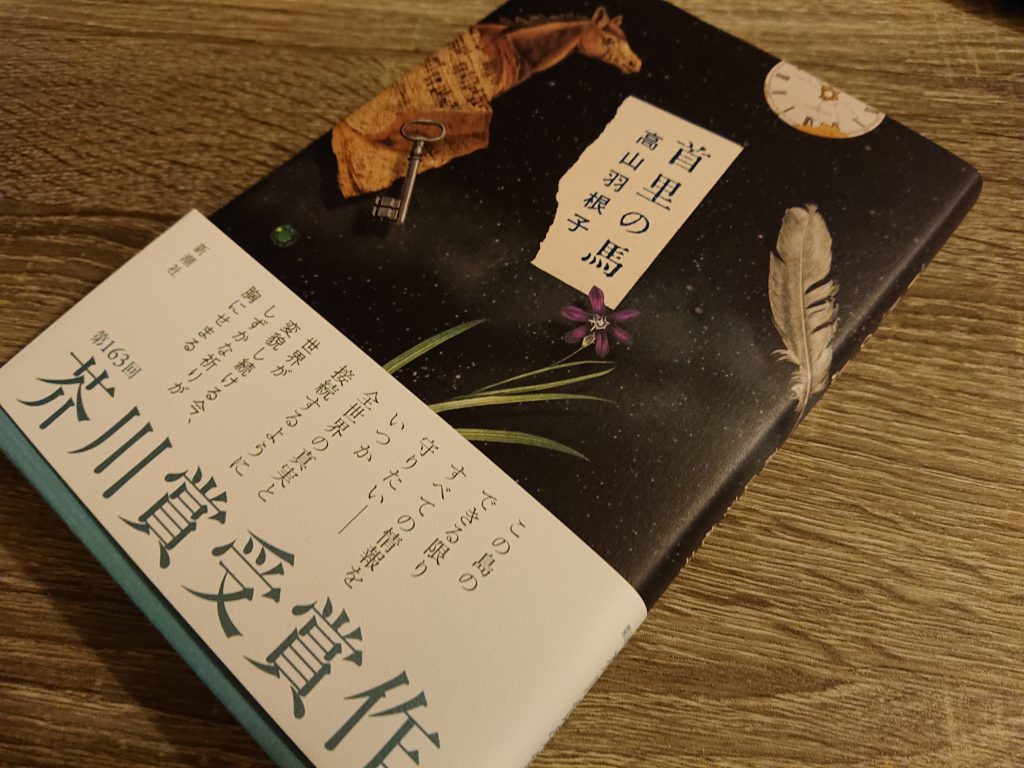 首里の馬
高山羽根子
この島の
できる限り
すべての情報を
守りたい―
いつか
全世界の真実と
接続するように
世界が
変貌し続ける今、
しずかな祈りが
胸にせまる
新潮社
第163回
芥川賞受賞作